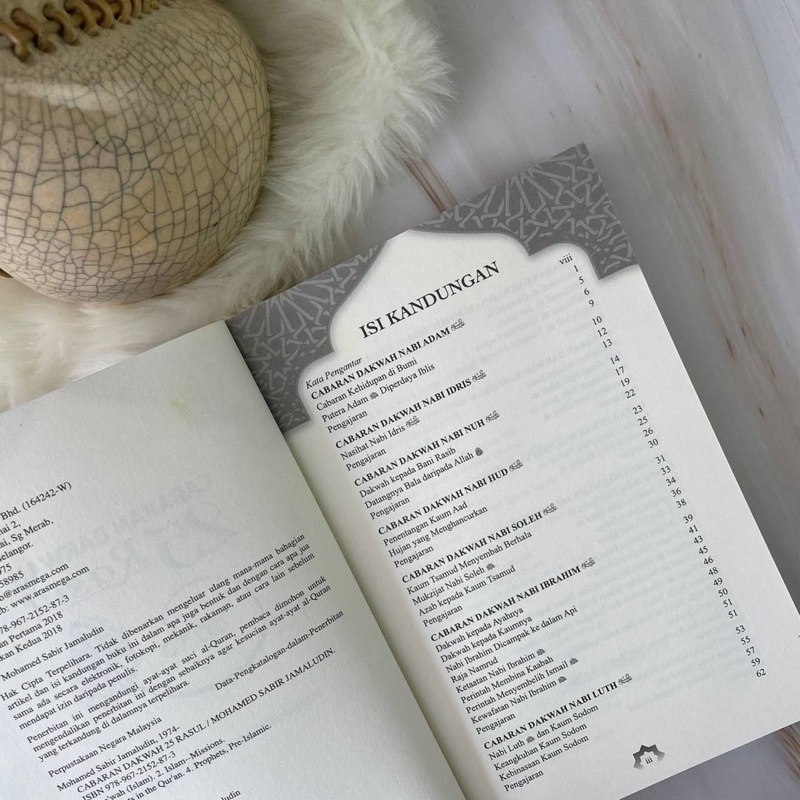 Bhd. (164242-W)
ai 2,
ai, Sg Merab,
elangor.
975
58985
o@arasmega.com
b: www.arasmega.com
978-967-2152-87-3
an Pertama 2018
kan Kedua 2018
Mohamed Sabir Jamaludin
Hak Cipta Terpelihara. Tidak dibenarkan mengeluar ulang mana-mana bahagian
artikel dan isi kandungan buku ini dalam apa juga bentuk dan dengan cara apa jua
sama ada secara elektronik, fotokopi, mekanik, rakaman, atau cara lain sebelum
mendapat izin daripada penulis.
Penerbitan ini mengandungi ayat-ayat suci al-Quran, pembaca dimohon untuk
mengendalikan penerbitan ini dengan sebaiknya agar kesucian ayat-ayat al-Quran
yang terkandung di dalamnya terpelihara.
Perpustakaan Negara Malaysia Data-Pengkatalogan-dalam-Penerbitan
Mohamed Sabir Jamaludin, 1974-
CABARAN DAKWAH 25 RASUL / MOHAMED SABIR JAMALUDIN.
ISBN 978-967-2152-87-3
(Islam). 2. Islam--Missions.
in the Qur'an. 4. Prophets, Pre-Islamic.
ISI KANDUNGAN
Kata Pengantar viii
CABARAN DAKWAH NABI ADAM 1
Cabaran Kehidupan di Bumi 5
Putera Adam Diperdaya Iblis 6
Pengajaran 9
CABARAN DAKWAH NABI IDRIS 10
Nasihat Nabi Idris 12
Pengajaran 13
CABARAN DAKWAH NABI NUH 14
Dakwah kepada Bani Rasib 17
Datangnya Bala daripada Allah 19
Pengajaran 22
CABARAN DAKWAH NABI HUD 23
Penentangan Kaum Aad 25
Hujan yang Menghancurkan 26
Pengajaran 30
CABARAN DAKWAH NABI SOLEH 31
Kaum Tsamud Menyembah Berhala 33
Mukzijat Nabi Soleh 34
Azab kepada Kaum Tsamud 36
Pengajaran 38
CABARAN DAKWAH NABI IBRAHIM 39
Dakwah kepada Ayahnya 41
Dakwah kepada Kaumnya 43
Nabi Ibrahim Dicampak ke dalam Api 45
Raja Namrud 46
Ketaatan Nabi Ibrahim 48
Perintah Membina Kaabah 49
Perintah Menyembelih Ismail 50
Kewafatan Nabi Ibrahim 51
Pengajaran 51
CABARAN DAKWAH NABI LUTH 53
Nabi Luth dan Kaum Sodom 55
Keangkuhan Kaum Sodom 57
Kebinasaan Kaum Sodom 59
Pengajaran 62
iii